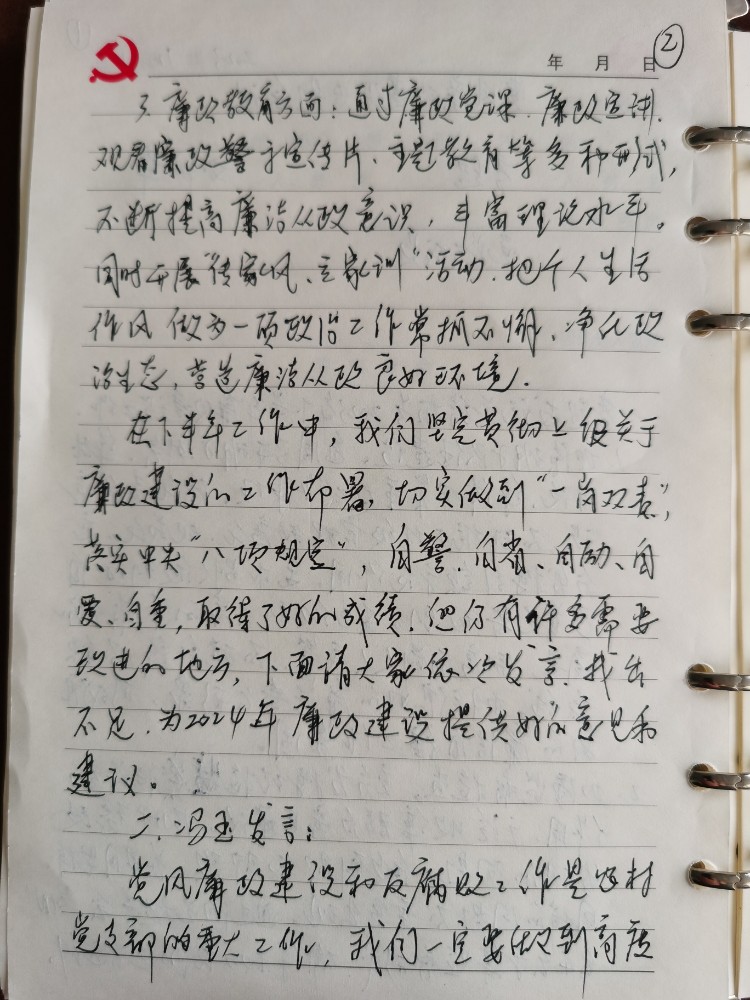 年 月 日 ②
3. 廉政教育方面：通过廉政党课、廉政宣讲、
观看廉政警示宣传片、主题教育等多种形式，
不断提高廉洁从政意识，丰富理论水平。
同时开展“传家风、立家训”活动，把个人生活
作风做为一项政治工作常抓不懈，净化政
治生态，营造廉洁从政良好环境。
在下半年工作中，我们坚定贯彻上级关于
廉政建设的工作布署，切实做到“一岗双责”，
落实中央“八项规定”，自警、自省、自励、自
爱、自重，取得了好的成绩，但仍有许多需要
改进的地方，下面请大家依次发言，找出
不足，为2024年廉政建设提供好的意见和
建议。
二、冯玉发言：
党风廉政建设和反腐败工作是农村
党支部的重大工作，我们一定要做到高度